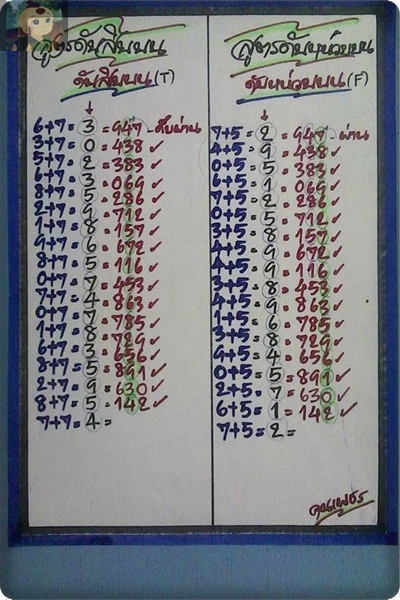 สูตรดับสิบบน
ดับสิบบน(T)
↓
6+7=3=947-ดับผ่าน
3+7=0=438✓
5+7=2=383✓
6+7=3=069✓
8+7=5=286✓
2+7=9=712✓
1+7=8=157✓
9+7=6=672✓
8+7=5=116✓
0+7=7=453✓
7+7=4=863✓
0+7=7=785✓
1+7=8=729✓
6+7=3=656✓
8+7=5=891✓
2+7=9=630✓
8+7=5=142✓
7+7=4=
สูตรดับหน่วยบน
ดับหน่วยบน(F)
↓
7+5=2=947-ผ่าน
4+5=9=438✓
0+5=5=383✓
6+5=1=069✓
7+5=2=286✓
0+5=5=712✓
3+5=8=157✓
4+5=9=672✓
4+5=9=116✓
3+5=8=453✓
4+5=9=863✓
1+5=6=785✓
3+5=8=729✓
9+5=4=656✓
0+5=5=891✓
2+5=7=630✓
6+5=1=142✓
7+5=2=